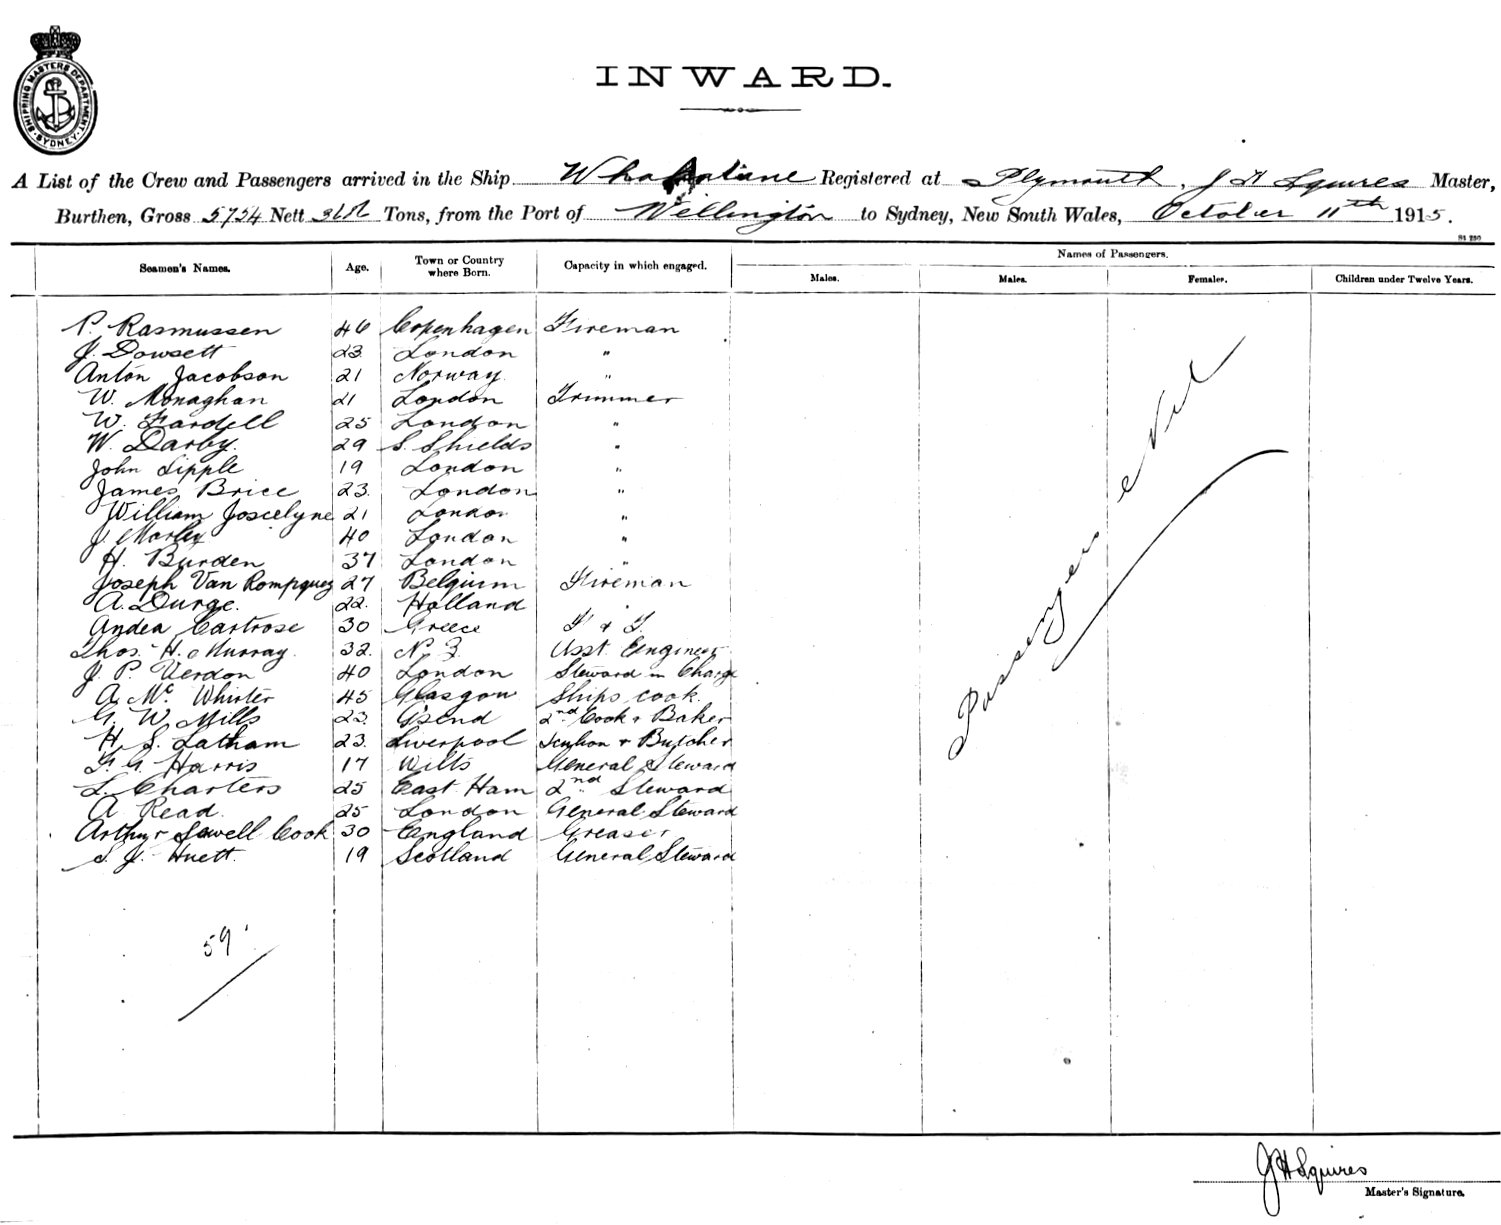 SHIPPING MASTERS DEPARTMENT. SYDNEY.
INWARD.
A List of the Crew and Passengers arrived in the Ship Registered at Plymouth, J H Squires Master,
Burthen, Gross 5724 Nett Tons, from the Port of Wellington to Sydney, New South Wales, October 11th 1915.
Seamen's Names. Age. Town or Country where Born. Capacity in which engaged. Names of Passengers.
Males. Males. Females. Children under Twelve Years.
P. Rasmussen 46 Copenhagen Fireman
J. Dowsett 23 London "
Anton Jacobson 21 Norway "
W. Monaghan 21 London Trimmer
W. Fardell 25 London "
W. Darby. 29 S. Shields "
John Lipple 19 London "
James Brice 23 London "
William Joscelyne 21 London "
J. Morley 40 London "
H. Burden 37 London "
Joseph Van 27 Belgium Fireman
A. Durge. 22 Holland "
Andea Cartrose 30 Greece F & T.
Thos. H. Murray. 32 N. Z. Asst. Engineer
J. P. Verdon 40 London Steward in Charge
A. Mc Whirter 45 Glasgow Ships cook.
G. W. Mills 23 G'send 2nd Cook & Baker
H. S. Latham 23 Liverpool & Butcher
F. G. Harris 17 Wilts General Steward
L. Charters 25 East Ham 2nd Steward
A Read 25 London General Steward
Arthur Sewell Cook 30 England Greaser
S. J. Huett. 19 Scotland General Steward
Passengers Nil
59
J H Squires
Master's Signature.